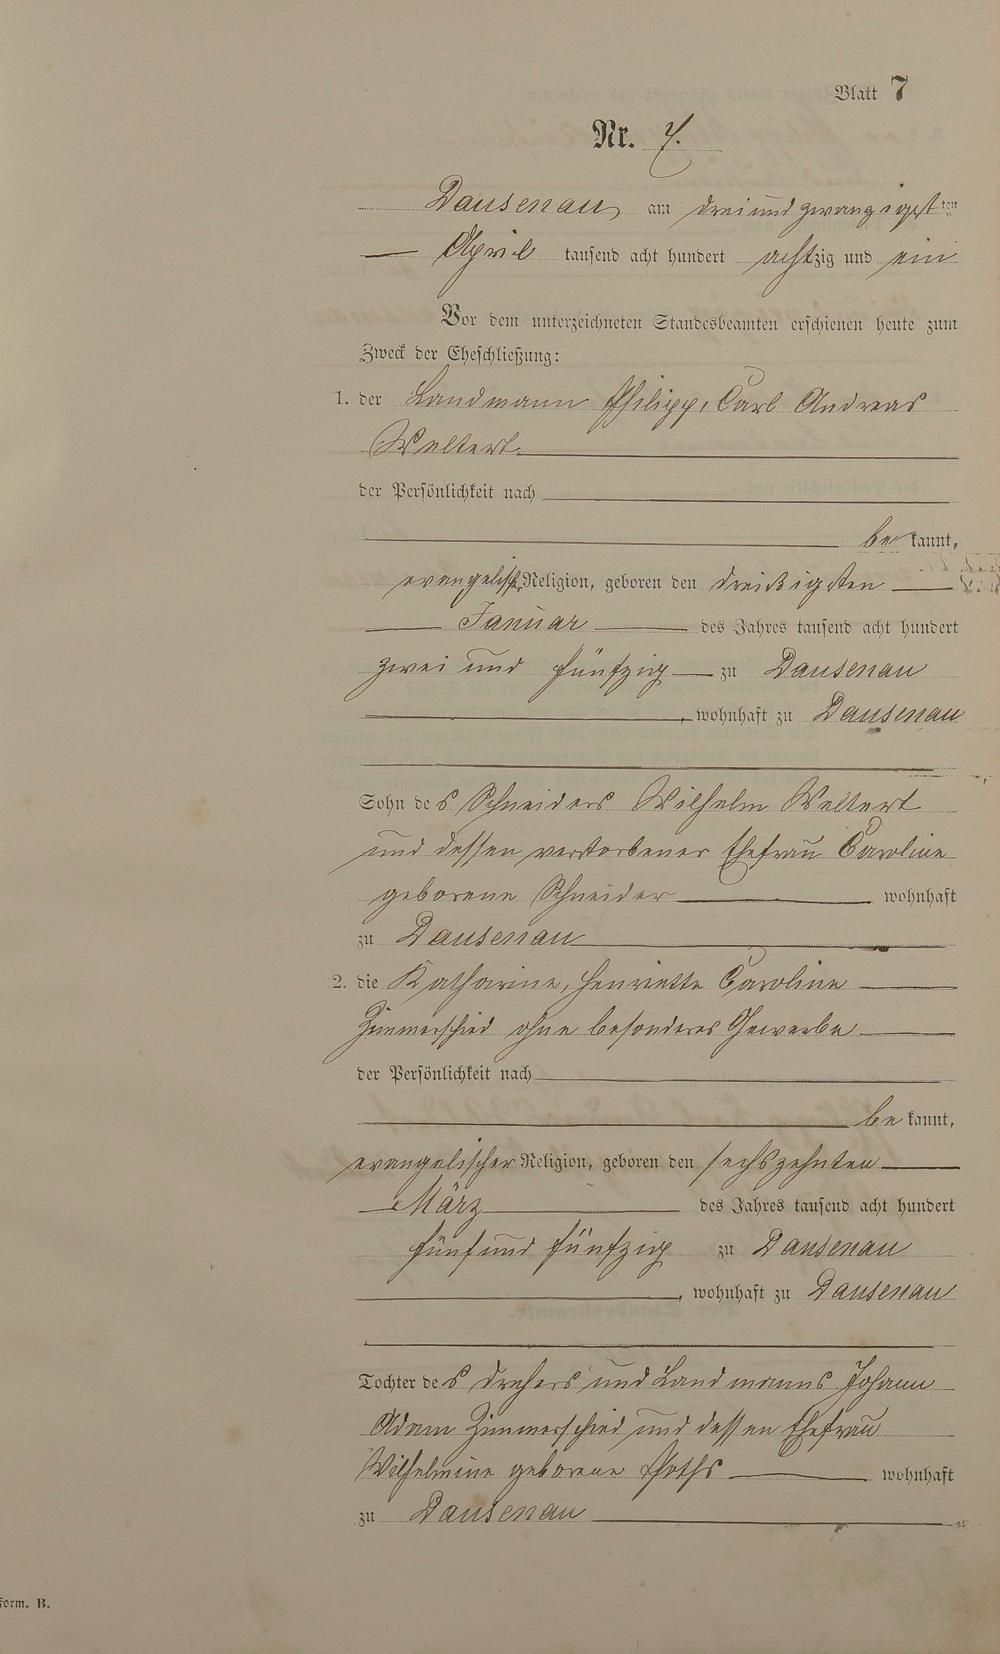 Blatt 7
Nr. 7.
Dausenau, am dreiundzwanzigsten
April tausend acht hundert achtzig und ein
Vor dem unterzeichneten Standesbeamten erschienen heute zum
Zweck der Eheschließung:
1. der Landmann Philipp, Carl Andreas
Weltert
der Persönlichkeit nach
bekannt,
evangelischer Religion, geboren den dreißigsten
Januar des Jahres tausend acht hundert
zwei und fünfzig zu Dausenau
, wohnhaft zu Dausenau
Sohn des Schneiders Wilhelm Weltert
und dessen verstorbener Ehefrau Caroline
geborene Schneider wohnhaft
zu Dausenau
2. die Katharine, Henriette Caroline
Zimmerschied ohne besonderes Gewerbe
der Persönlichkeit nach
bekannt,
evangelischer Religion, geboren den sechszehnten
März des Jahres tausend acht hundert
fünf und fünfzig zu Dausenau
, wohnhaft zu Dausenau
Tochter des Drehers und Landmanns Johann
Adam Zimmerschied und dessen Ehefrau
Wilhelmine geborene Poths wohnhaft
zu Dausenau
Form. B.